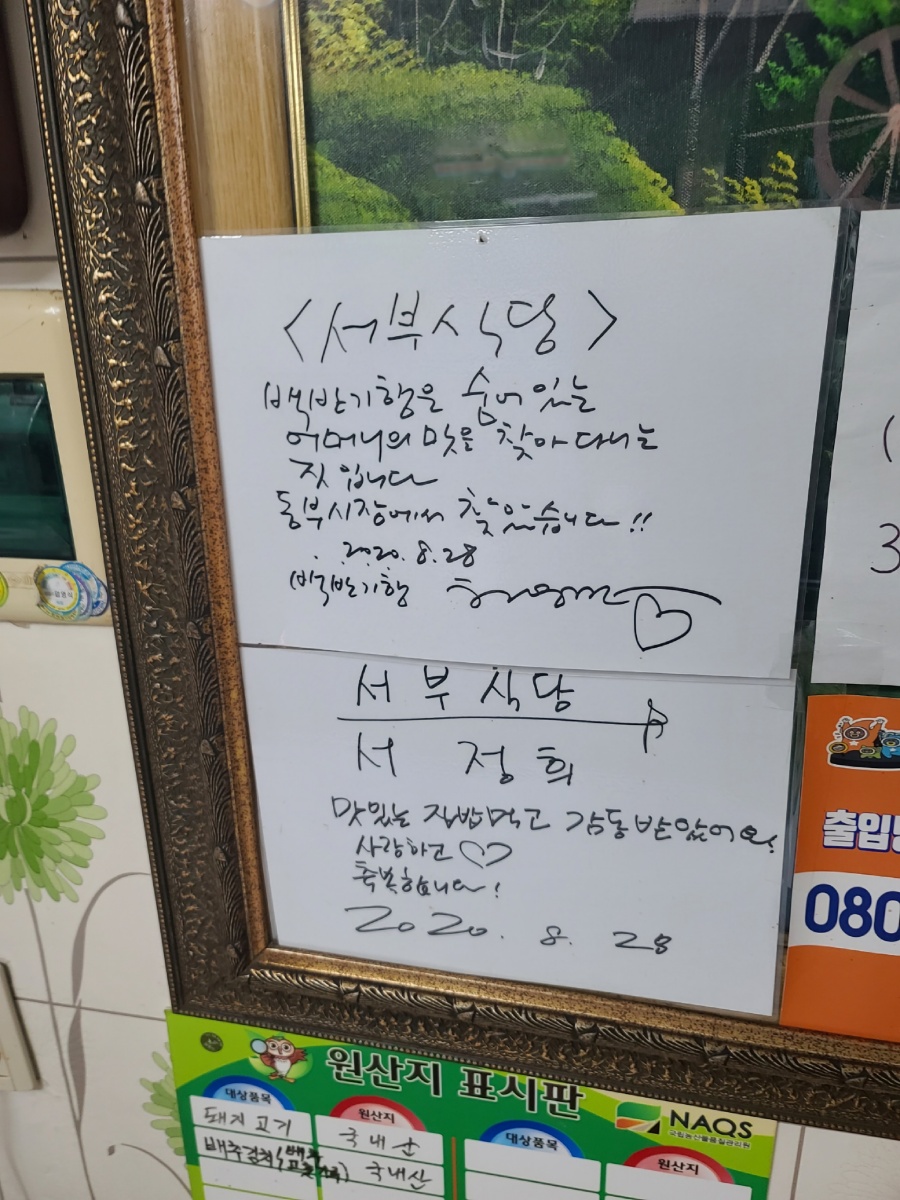 <서부식당>
백반기행은 숨어있는
어머니의 맛을 찾아다니는
짓입니다
동부시장에서 찾았습니다!!
2020. 8.28
백반기행
서부식당
서 정희
맛있는 집밥먹고 감동받았어요!
사랑하고♡
축복합니다!
2020. 8. 28
(
3
출입
080
원산지 표시판
NAQS
국립농산물품질관리원
대상품목 원산지 대상품목 원산지
돼지고기 국내산
배추김치(배추 고춧가루) 국내산